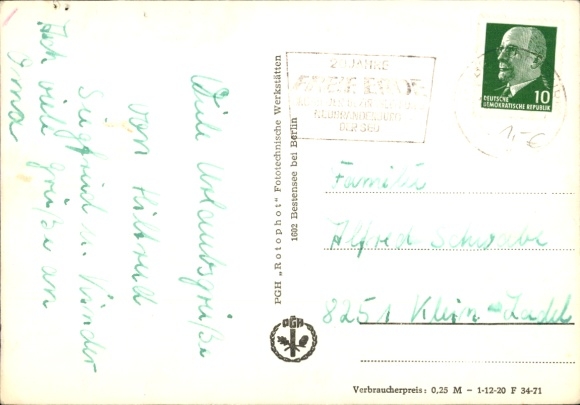 Viele Urlaubsgrüße
von Hiltrud
Siegfried u. Kinder
Hzl. viele Grüße an
Oma
PGH „Rotophot" Fototechnische Werkstätten
1602 Bestensee bei Berlin
PGH
20 JAHRE
DER DSF
DEUTSCHE
DEMOKRATISCHE REPUBLIK
10
Familie
Alfred Schwabe
8251 Klein-Zadel
Verbraucherpreis: 0,25 M - 1-12-20 F 34-71